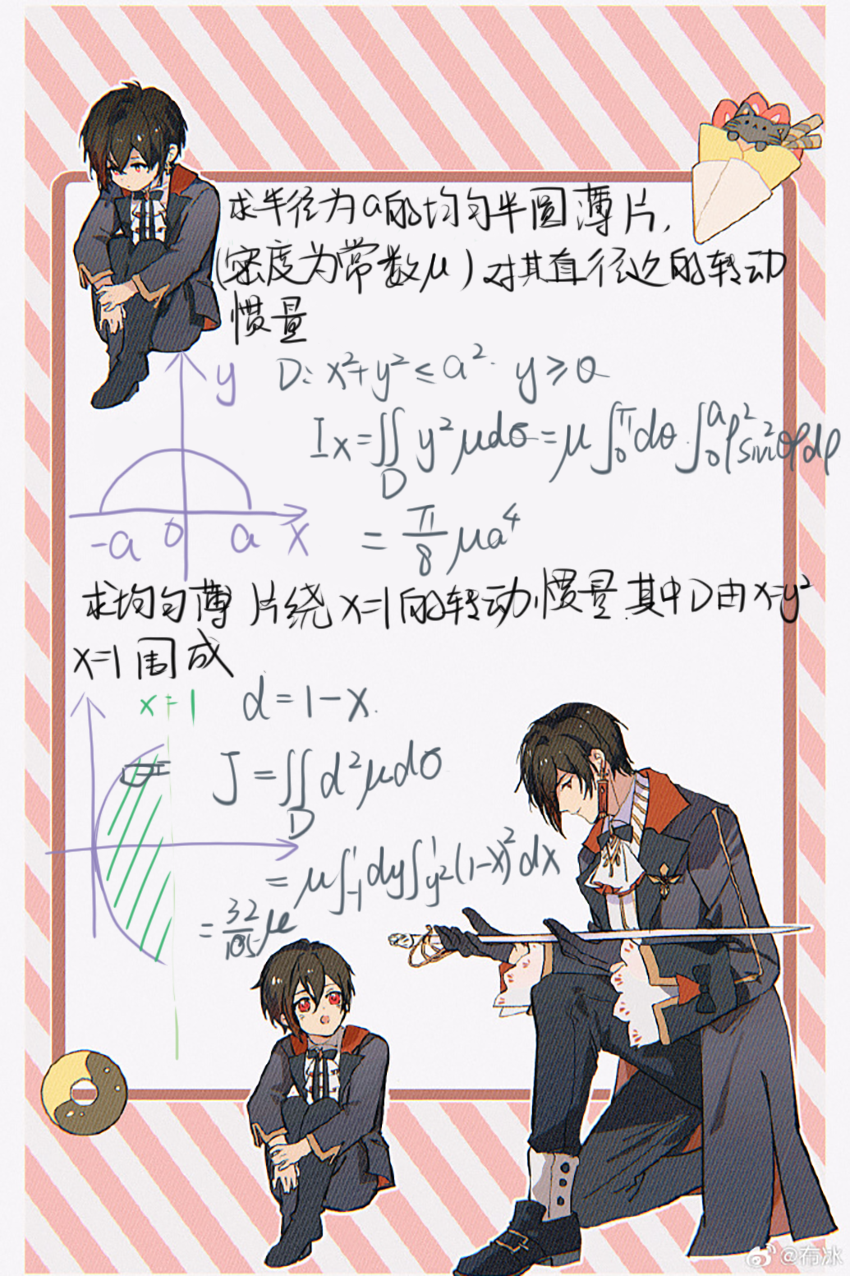 求半径为a的均匀半圆薄片,
(密度为常数μ)对其直径边的转动
惯量
D: x²+y²≤a². y≥0
y
Ix=∬_D y²μdσ=μ∫₀^π dθ∫₀^a ρ²sin²θρdρ
-a 0 a x
=π/8 μa⁴
求均匀薄片绕x=1的转动惯量.其中D由x=y²
x=1围成
x=1
d=1-x.
J=∬_D d²μdσ
=μ∫₋₁^1 dy∫_y²^1 (1-x)²dx
=32/105 μ
@布冰